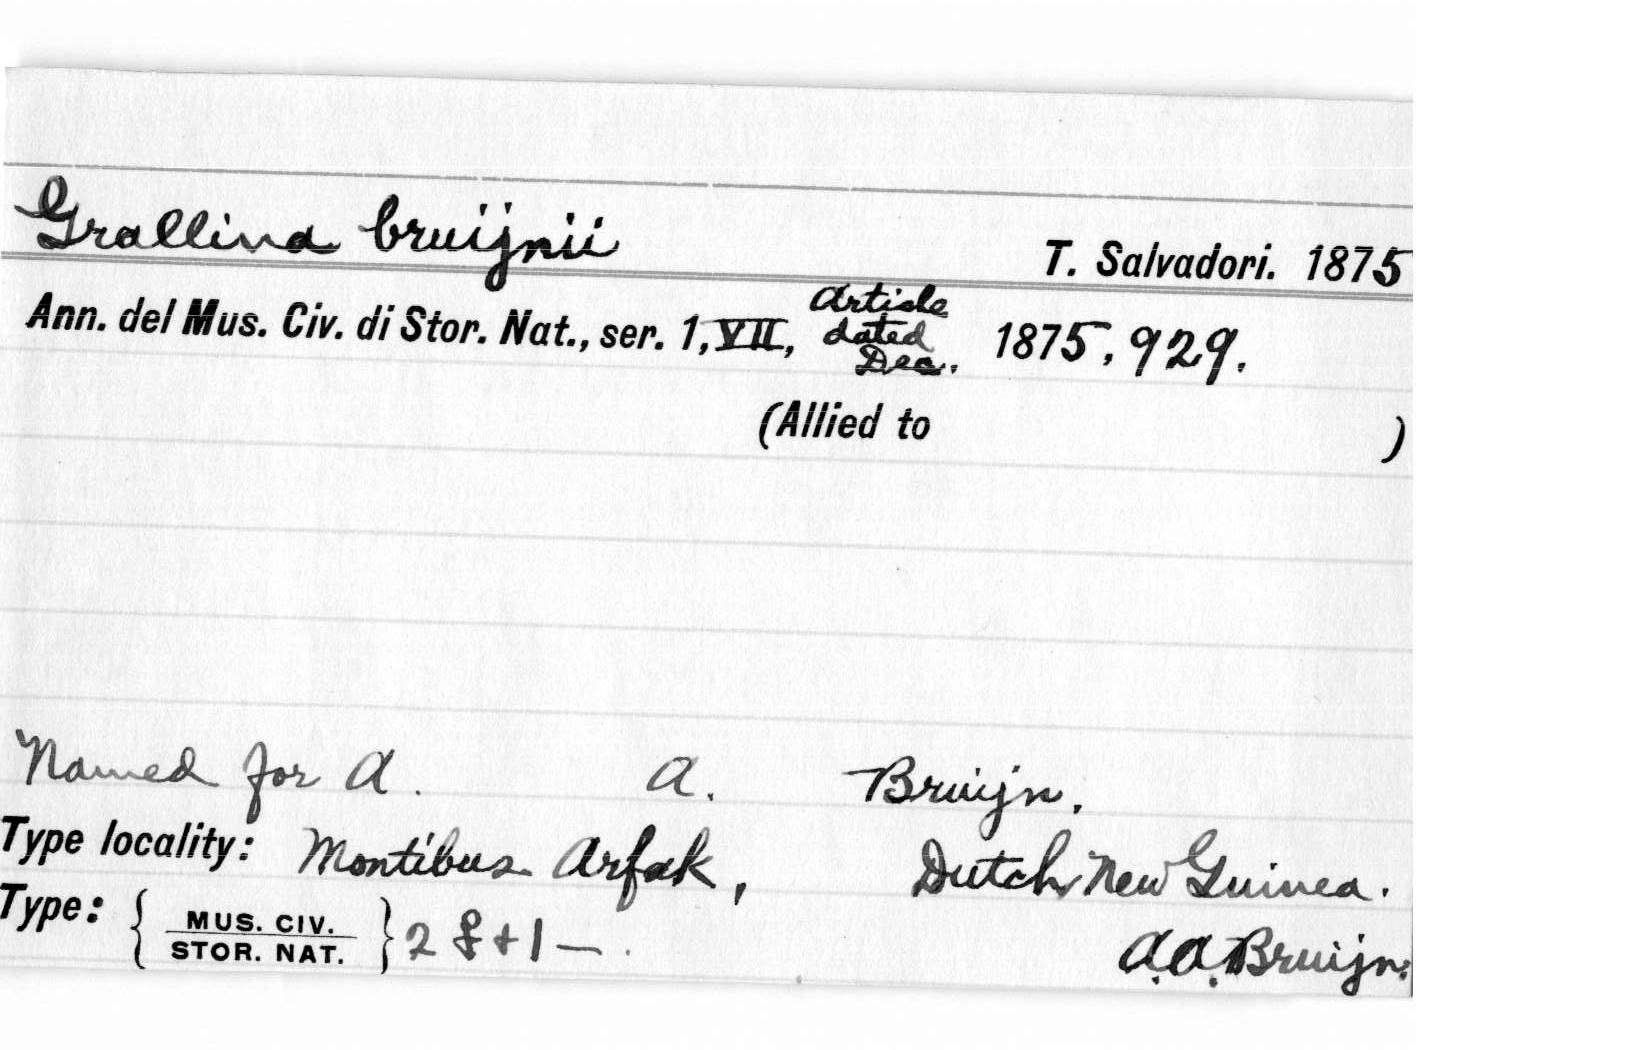 Grallina bruijnii T. Salvadori. 1875
Ann. del Mus. Civ. di Stor. Nat., ser. 1, VII, Article dated Dec. 1875, 929.
(Allied to )
Named for A. A. Bruijn.
Type locality: Montibus Arfak, Dutch New Guinea.
Type: { MUS. CIV. STOR. NAT. } 2 + 1 — . A.A. Bruijn.